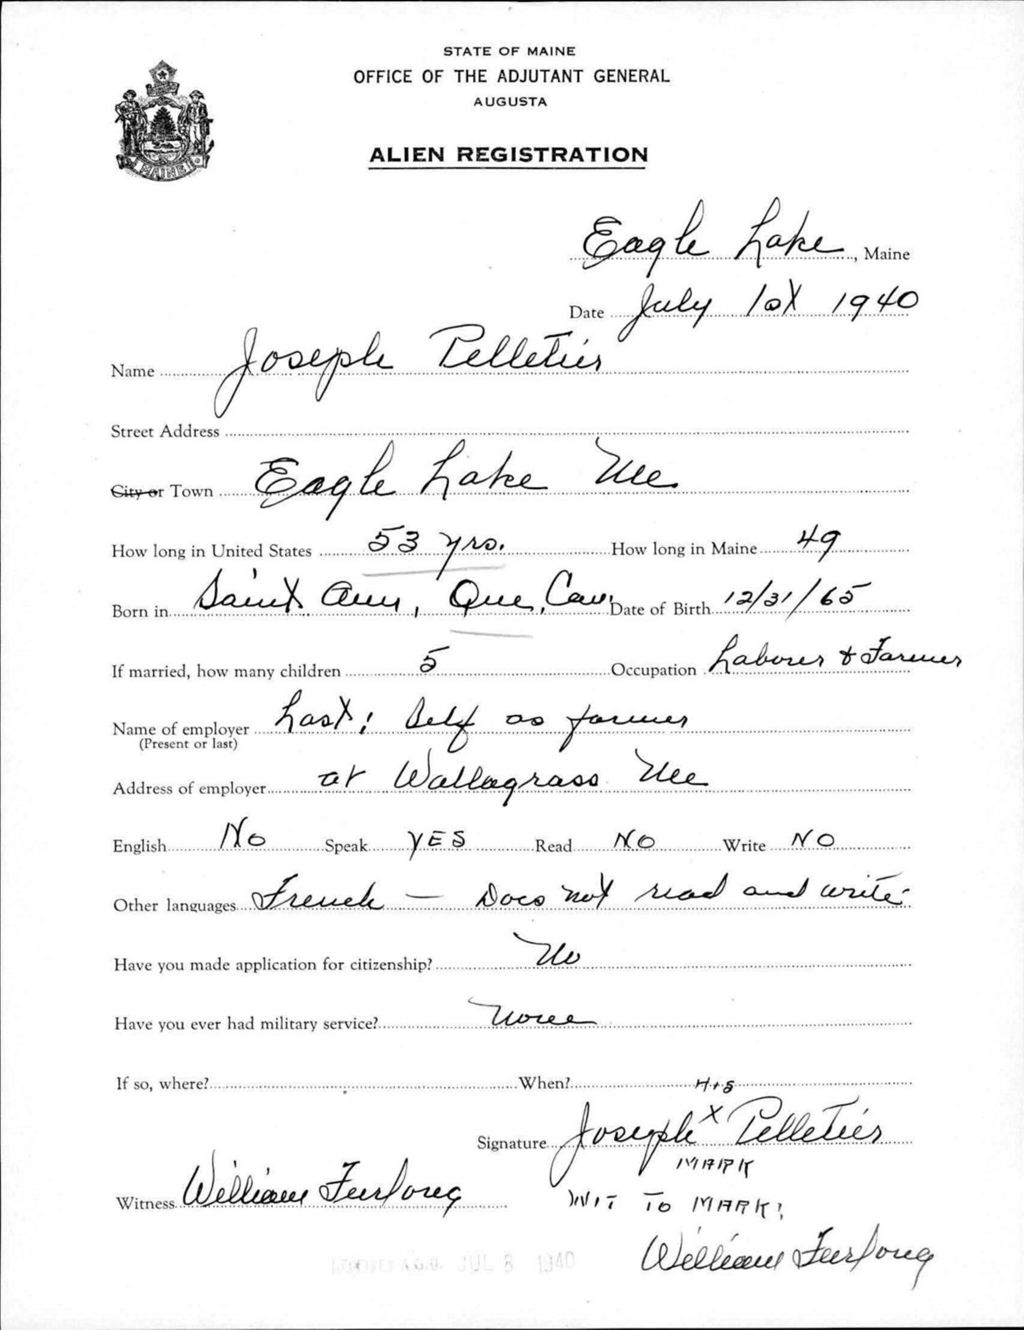 STATE OF MAINE
OFFICE OF THE ADJUTANT GENERAL
AUGUSTA
MAINE
ALIEN REGISTRATION
Eagle Lake, Maine
Date July 1st 1940
Name Joseph Pelletier
Street Address
City or Town Eagle Lake Me.
How long in United States 53 yrs. How long in Maine 49
Born in Saint Ann, Que, Can. Date of Birth 12/31/65
If married, how many children 5 Occupation Laborer & Farmer
Name of employer Last: Self as farmer
(Present or last)
Address of employer at Wallagrass Me
English No Speak YES Read NO Write NO
Other languages French — Does not read and write.
Have you made application for citizenship? No
Have you ever had military service? None
If so, where? When?
Signature Joseph X Pelletier
MARK
Witness William Furlong
WIT TO MARK:
William Furlong
JUL 8 1940